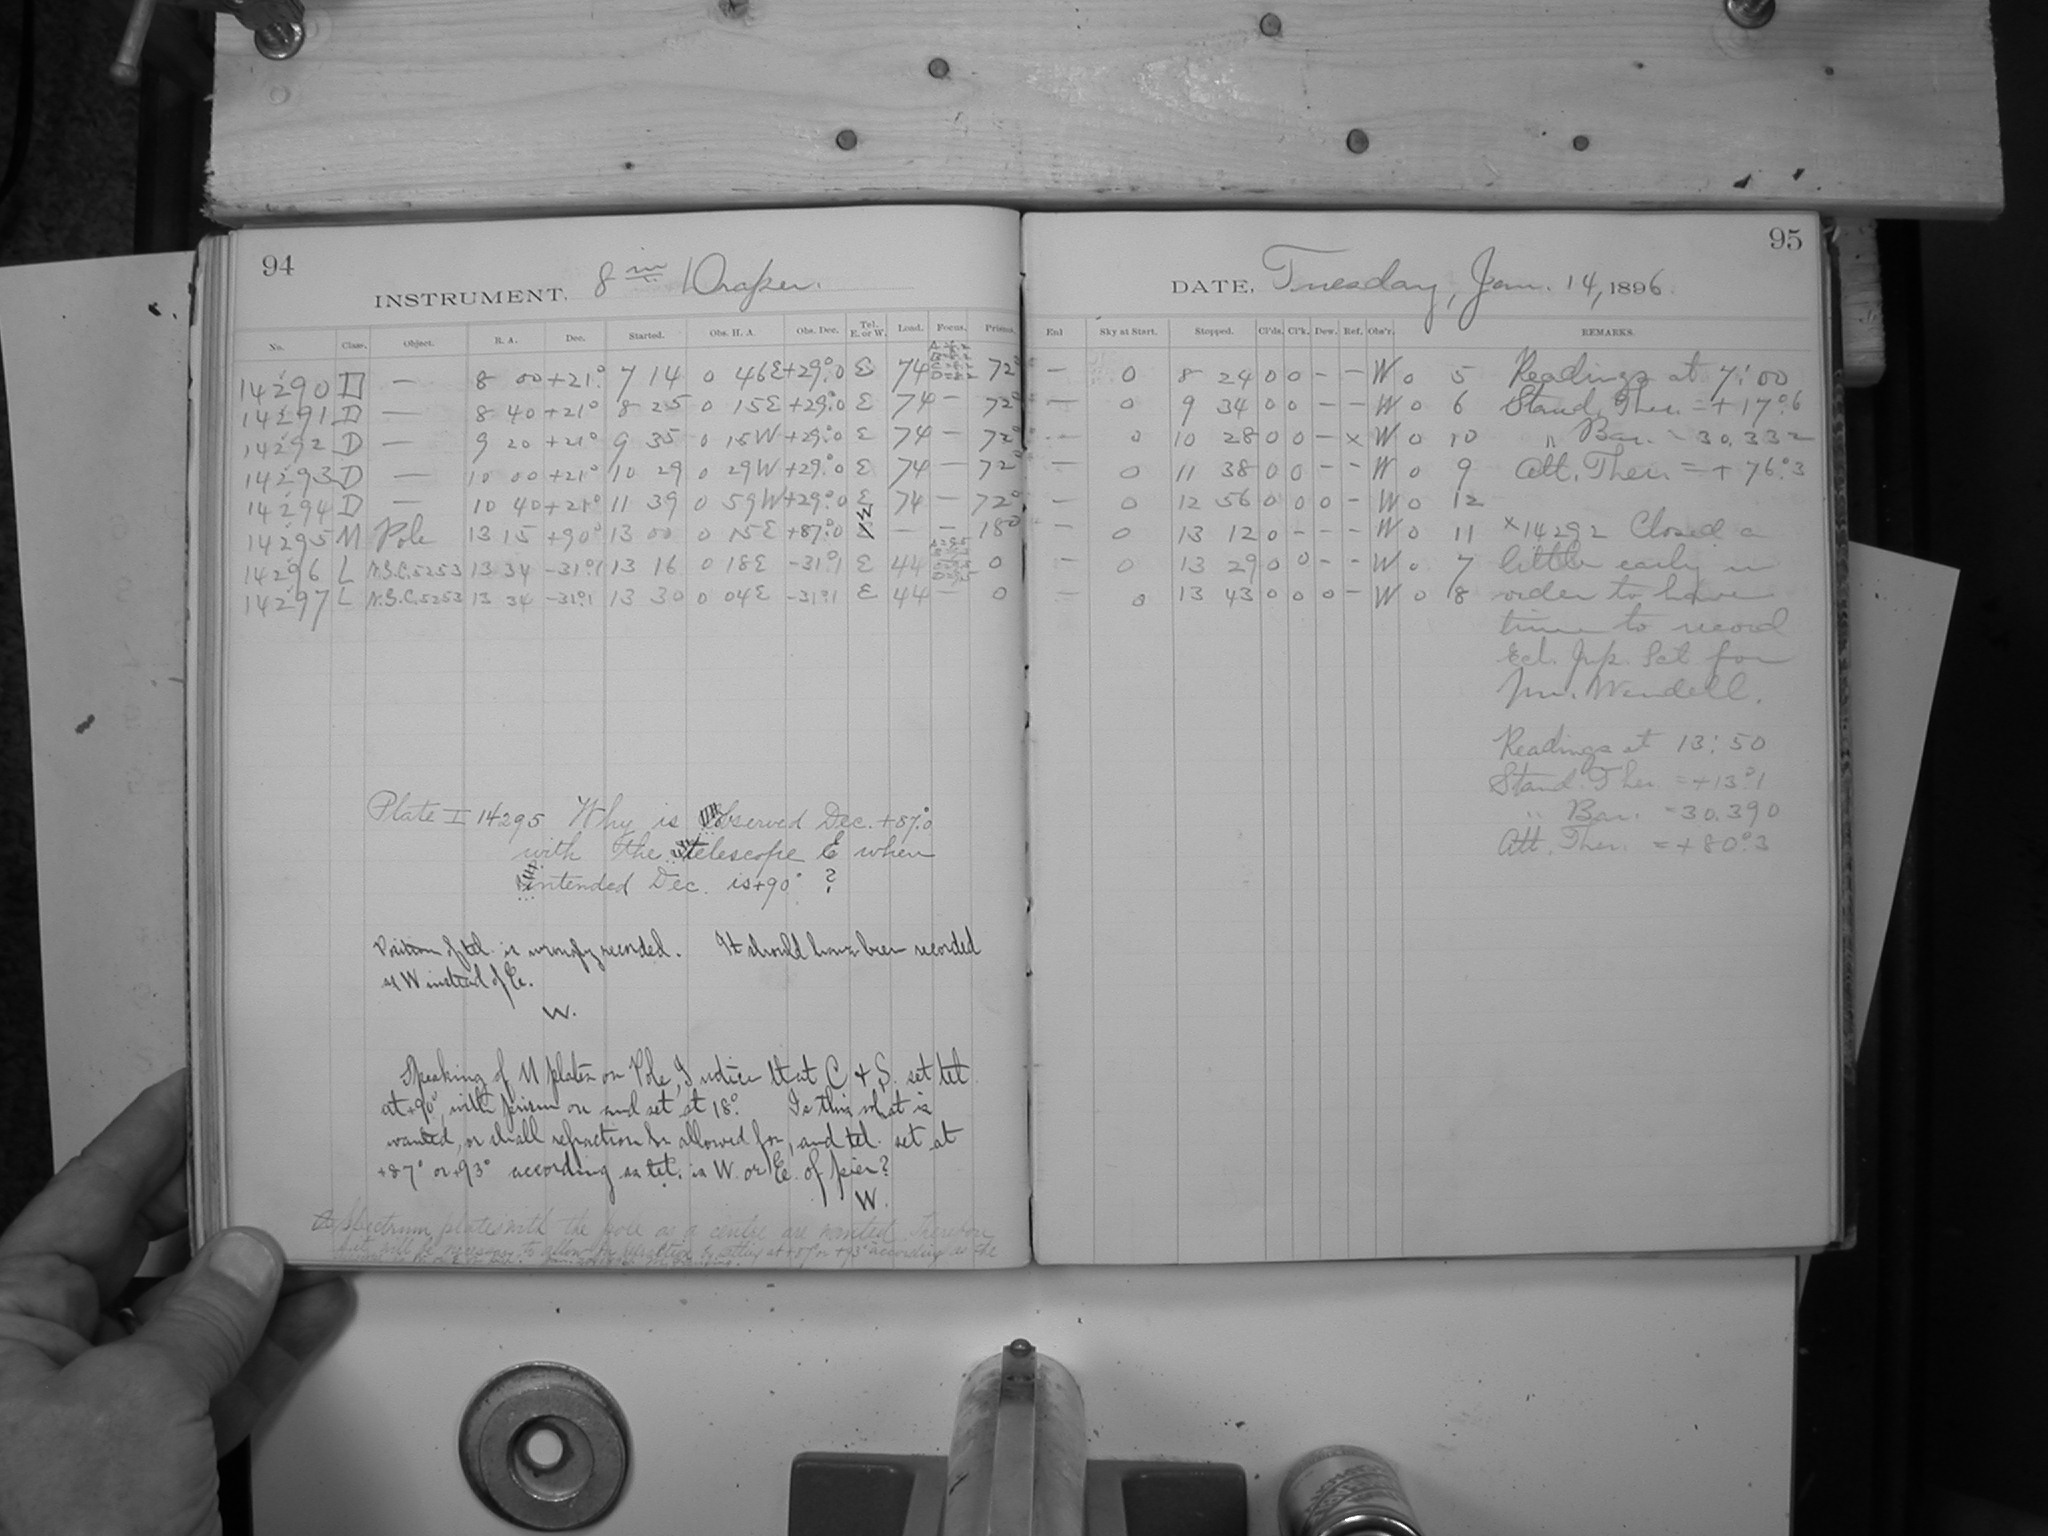 94
INSTRUMENT. 8 in Draper.
No. Class. Object. R. A. Dec. Started. Obs. H. A. Obs. Dec. Tel. E. or W. Load. Focus. Prisms.
14290 D — 8 00 +21° 7 14 0 46E +29°.0 E 74 72°
14291 D — 8 40 +21° 8 25 0 15E +29°.0 E 74 — 72°
14292 D — 9 20 +21° 9 35 0 15W +29°.0 E 74 — 72°
14293 D — 10 00 +21° 10 29 0 29W +29°.0 E 74 — 72°
14294 D — 10 40 +21° 11 39 0 59W +29°.0 E 74 — 72°
14295 M Pole 13 15 +90° 13 00 0 15E +87°.0 — — 18°
14296 L N.G.C.5253 13 34 -31°.1 13 16 0 18E -31°.1 E 44 0
14297 L N.G.C.5253 13 34 -31°.1 13 30 0 04E -31°.1 E 44 — 0
Plate I 14295 Why is observed Dec. +87°.0
with the telescope E when
intended Dec. is +90° ?
Position of tel. is wrongly recorded. It should have been recorded
as W instead of E.
W.
Speaking of M plates on Pole, I notice that C & S. set tel.
at +90°, with prism on and set at 18°. Is this what is
wanted, or shall refraction be allowed for, and tel. set at
+87° or +93° according as tel. is W. or E. of pier?
W.
Spectrum plates with the pole as a centre are wanted. Therefore
it will be necessary to allow for refraction by setting at +87° or +93° according as the
95
DATE, Tuesday, Jan. 14, 1896.
Enl Sky at Start. Stopped. Cl'ds. Cl'k. Dew. Ref. Obs'r. REMARKS.
— 0 8 24 0 0 – – W 0 5 Readings at 7:00
— 0 9 34 0 0 – – W 0 6 Stand. Ther. = +17°.6
— 0 10 28 0 0 – x W 0 10 " Bar. = 30.332
— 0 11 38 0 0 – – W 0 9 Att. Ther. = +76°.3
— 0 12 56 0 0 0 – W 0 12
— 0 13 12 0 – – – W 0 11 x14292 Closed a
— 0 13 29 0 0 – – W 0 7 little early in
— 0 13 43 0 0 0 – W 0 8 order to have
time to record
Ecl. Jup. Sat for
Mr. Wendell.
Readings at 13:50
Stand. Ther. = +13°.1
" Bar. = 30.390
Att. Ther. = +80°.3